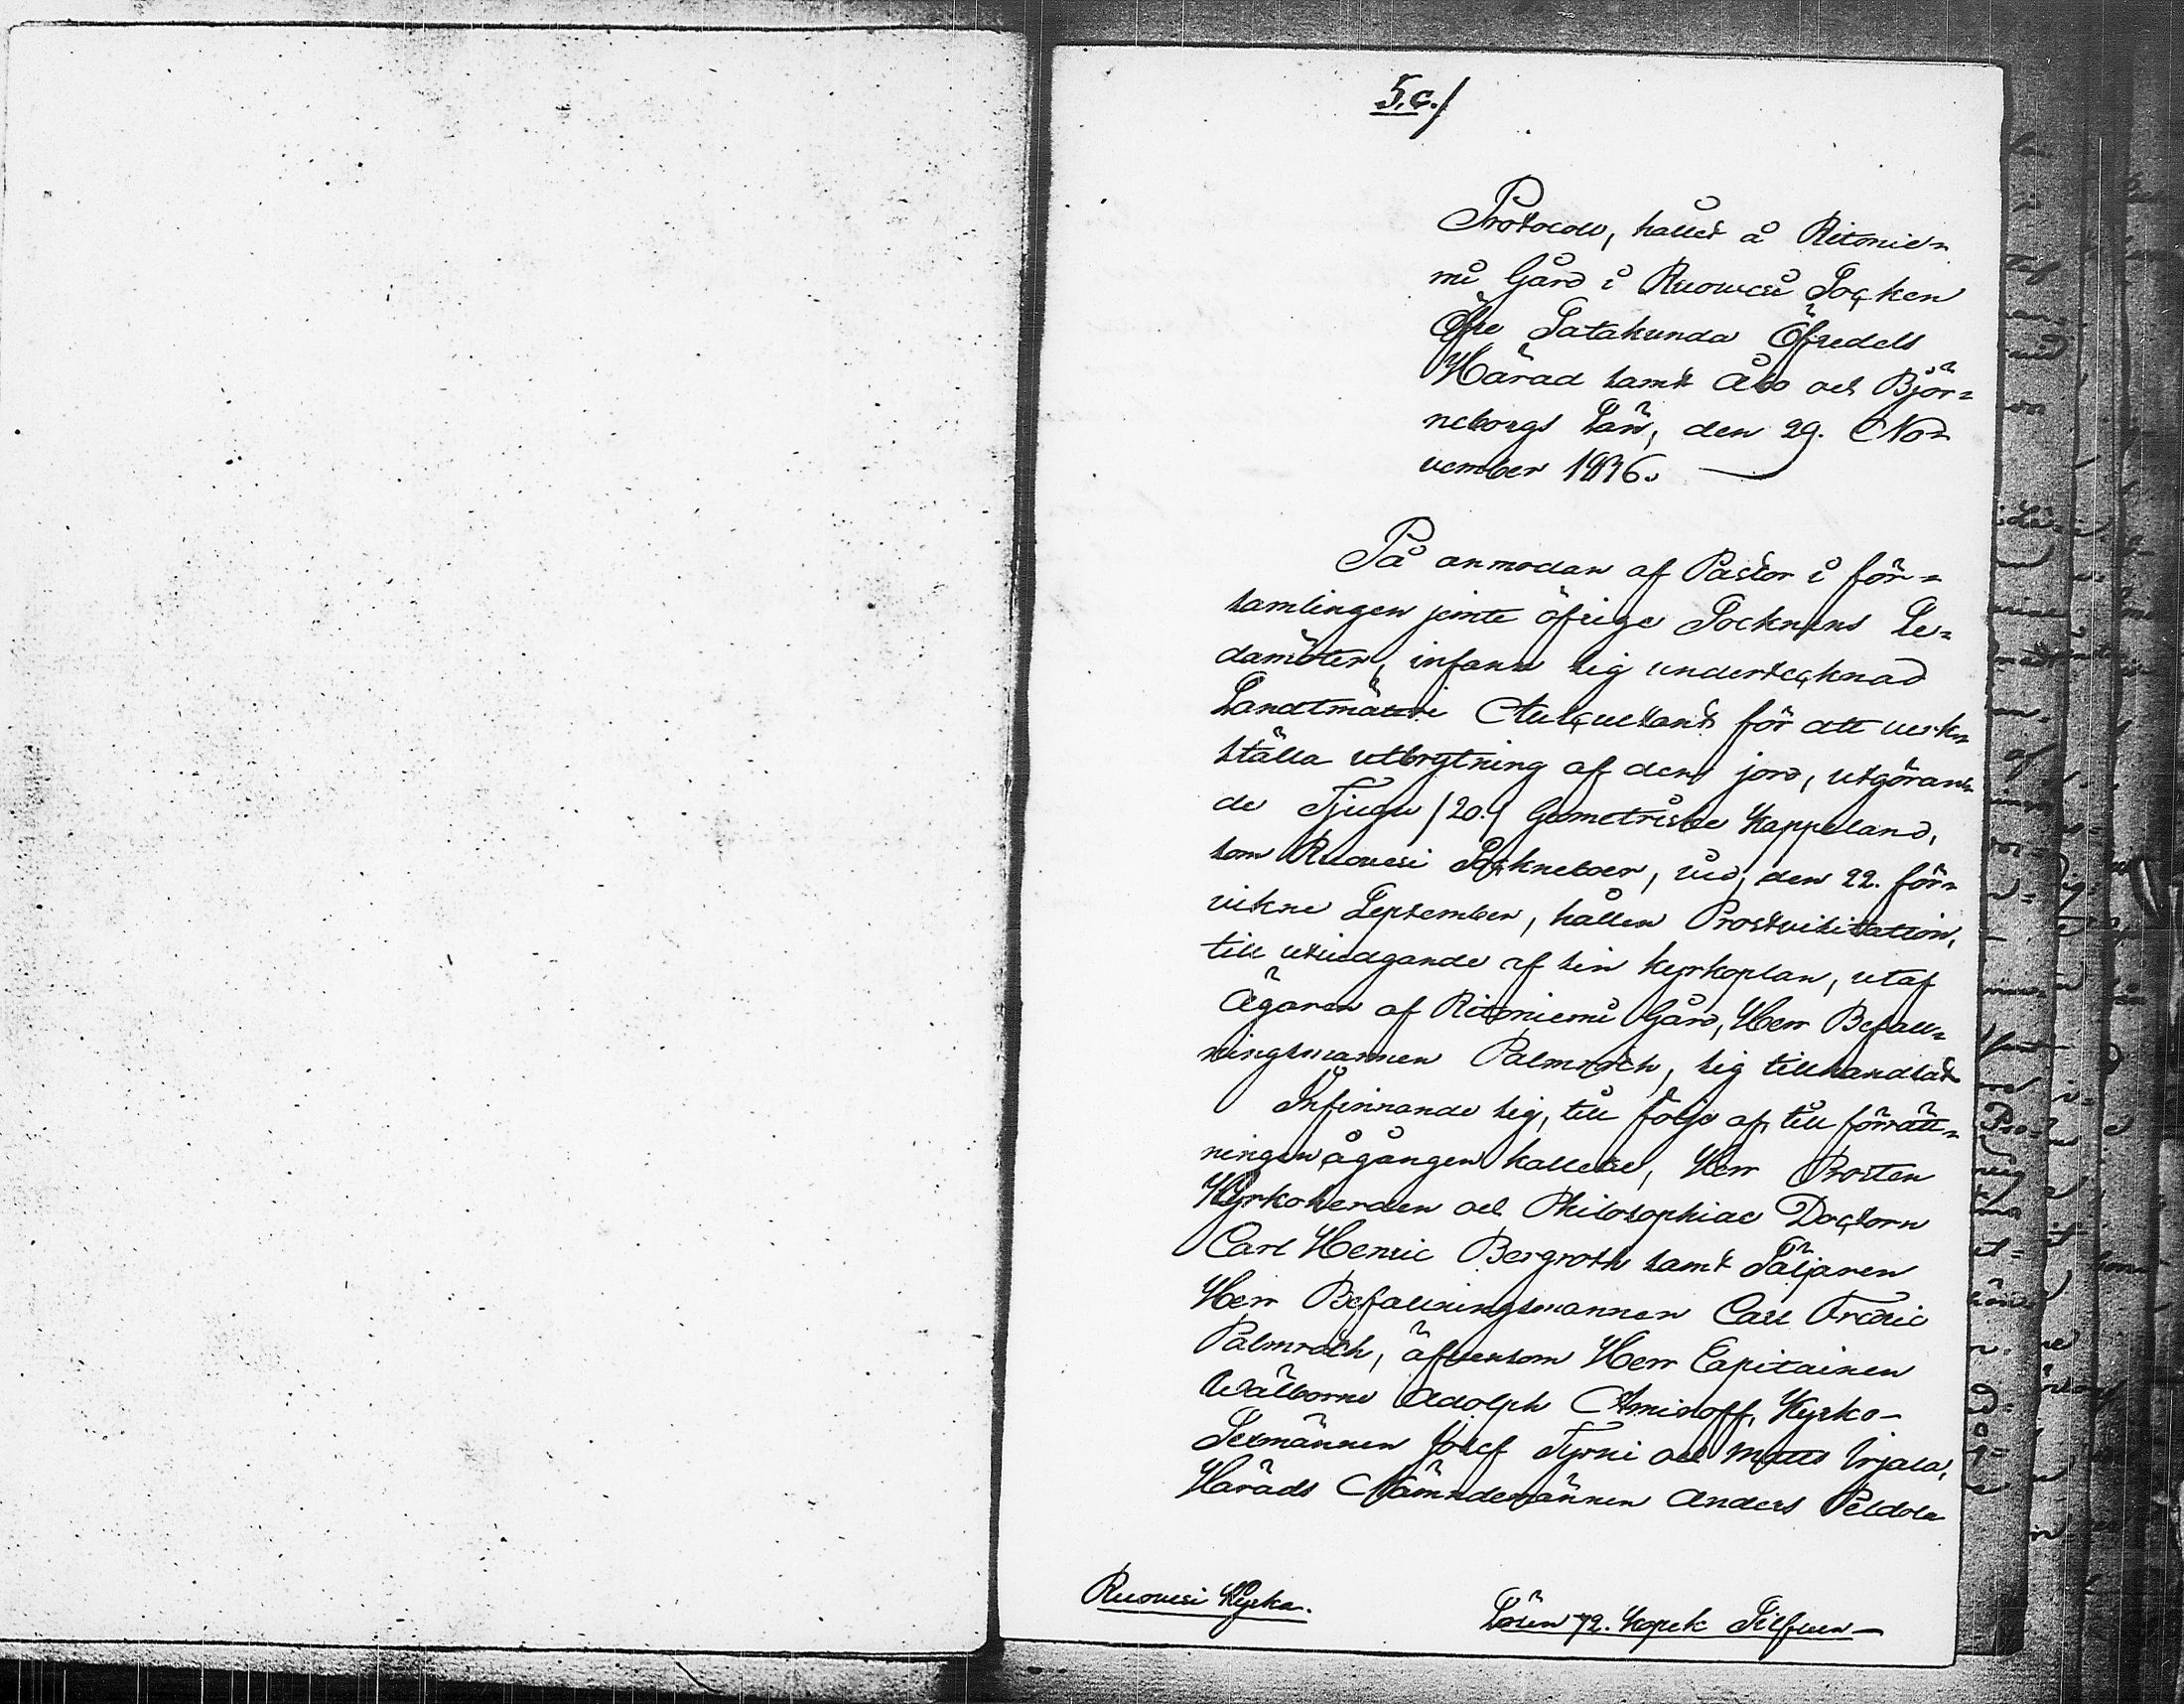 5.c./
Protocoll, hållit å Ritonie=
mi Gård i Ruowesi Socken
Öfre Satakunda Öfredels
Härad samt Åbo och Björ=
neborgs Län, den 29. No=
vember 1836.
På anmodan af Pastor i för=
samlingen jemte öfrige Socknens Le=
damöter, infann sig undertecknad
Landtmäteri Auscultant för att verk=
ställa utbrytning af den jord, utgöran=
de Tjugu /20./ Geometriske Kappeland,
som Ruovesi Sockneboer, vid, den 22. för=
vikne September, hållen Prostvisitation,
till utvidgande af sin kyrkoplan, utaf
Ägaren af Ritoniemi Gård, Herr Befall=
ningsmannen Palmroth, sig tillhandlat
Infinnande sig, till följe af, till förrätt=
ningen ågången kallelse, Herr Prosten
Kyrkoherden och Philosophiae Doctorn
Carl Henric Bergroth samt Säljaren
Herr Befallningsmannen Carl Fredric
Palmroth, äfvensom Herr Capitainen
Wälborne Adolph Aminoff, Kyrko-
Sexmännen Josef Tyrni och Matts Irjala,
Härads Nämndemännen Anders Peldola
Ruovesi Kyrka.
Lösen 72. Kopek Silfver